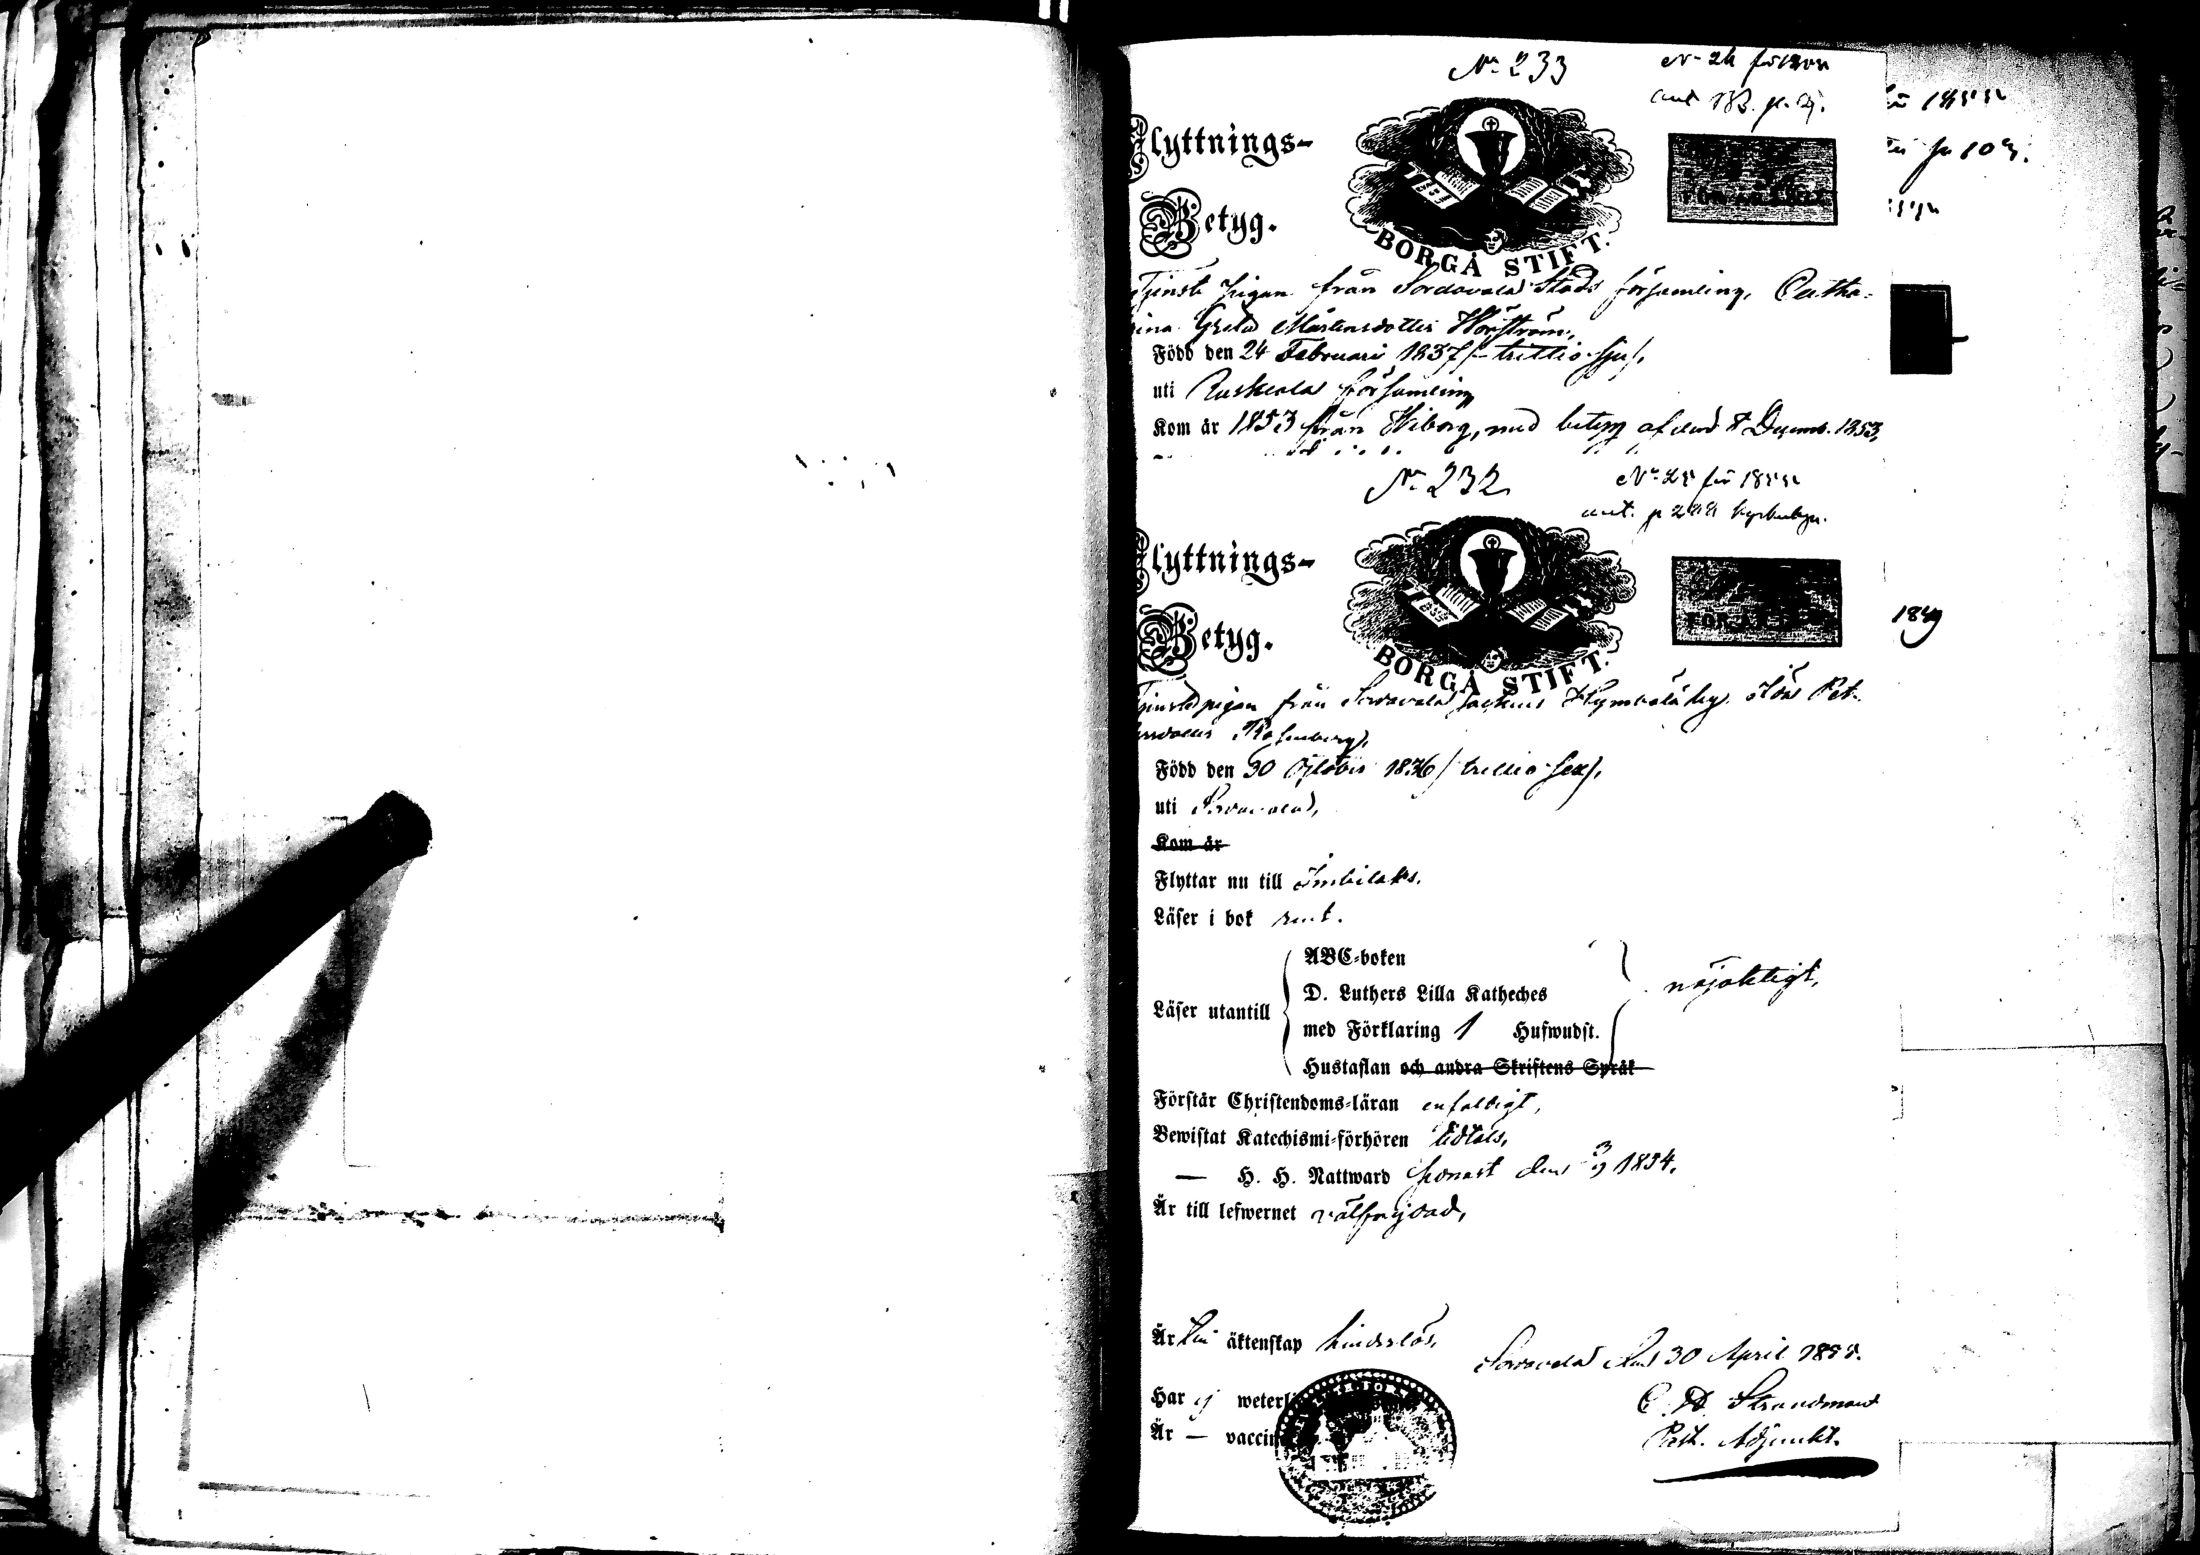 No 233
No 24 för 1855
ant 183. p. 9.
Flyttnings-
Betyg.
BORGÅ STIFT.
Tjenste pigan från Sordavala Stads församling, Catha-
rina Greta Mårtensdotter
Född den 24 Februari 1837/-trettio-sju/,
uti Ruskeala församling
Kom år 1853 från Wiborg, med betyg af den 8 Decemb. 1853,
No 232
No 25 för 1855
ant. p
Flyttnings-
Betyg.
BORGÅ STIFT.
1849
Tjenstepigan från Sordavala Sochens Hymbölä by
Rosenberg,
Född den 30 October 1836/trettio-sex/,
uti Sordavala,
Kom år
Flyttar nu till Imbilaks.
Läser i bok rent.
Läser utantill
ABC-boken
D. Luthers Lilla Katheches
med Förklaring 1 Hufwudst.
Hustaflan och andra Skriftens Språk
nöjaktigt,
Förstår Christendoms-läran enfaldigt,
Bewistat Katechismi-förhören tidtals,
— H. H. Nattward senast den 1854.
Är till lefwernet välfrejdad,
Är till äktenskap hinderslös,
Sordavala den 30 April 1855.
Har ej weterl
C. Strandman
Är — vaccin
Past. Adjunkt.